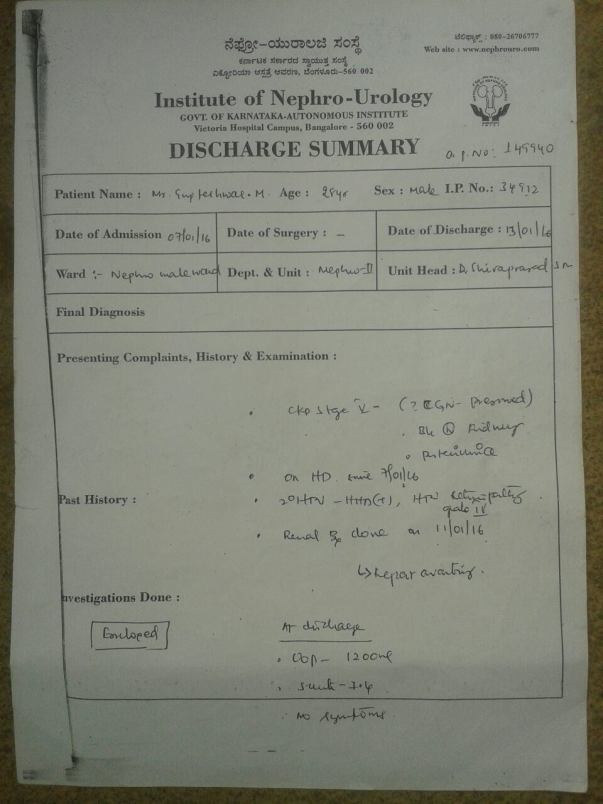 ನೆಫ್ರೋ-ಯುರಾಲಜಿ ಸಂಸ್ಥೆ
ಕರ್ನಾಟಕ ಸರ್ಕಾರದ ಸ್ವಾಯತ್ತ ಸಂಸ್ಥೆ
ವಿಕ್ಟೋರಿಯಾ ಆಸ್ಪತ್ರೆ ಆವರಣ, ಬೆಂಗಳೂರು-560 002
ಟೆಲಿಫ್ಯಾಕ್ಸ್ : 080-26706777
Web site : www.nephrouro.com
Institute of Nephro-Urology
GOVT. OF KARNATAKA-AUTONOMOUS INSTITUTE
Victoria Hospital Campus, Bangalore - 560 002
DISCHARGE SUMMARY
O.P.No: 149940
Patient Name : Mr. Gupteshwar. M. Age : 28yr Sex : Male I.P. No.: 34912
Date of Admission 07/01/16 Date of Surgery : - Date of Discharge : 13/01/16
Ward :- Nephro male ward Dept. & Unit : Nephro-II Unit Head : D. Shivaprasad
Final Diagnosis
Presenting Complaints, History & Examination :
CKD stage V - (? CGN - presumed)
Kidney
on HD since 7/01/16
Past History :
2° HTN - HHD(+), HTN Retinopathy
grade IV
Renal Bx done on 11/01/16
↳ Report awaiting.
Investigations Done :
Enclosed
At discharge
UOP - 1200ml
- 7.4
No symptoms.